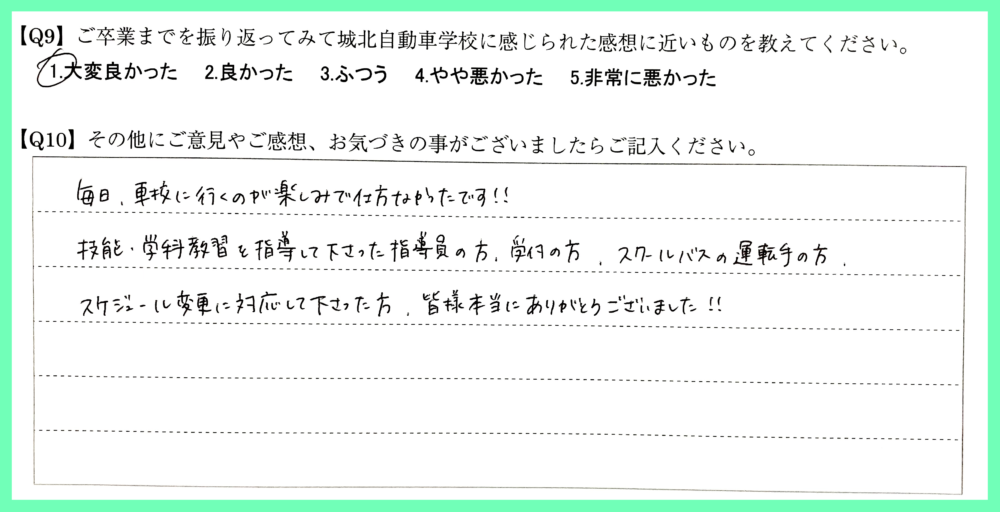 【Q9】ご卒業までを振り返ってみて城北自動車学校に感じられた感想に近いものを教えてください。
1.大変良かった 2.良かった 3.ふつう 4.やや悪かった 5.非常に悪かった
【Q10】その他にご意見やご感想、お気づきの事がございましたらご記入ください。
毎日、車校に行くのが楽しみで仕方なかったです!!
技能・学科教習を指導して下さった指導員の方、受付の方、スクールバスの運転手の方、
スケジュール変更に対応して下さった方、皆様本当にありがとうございました!!